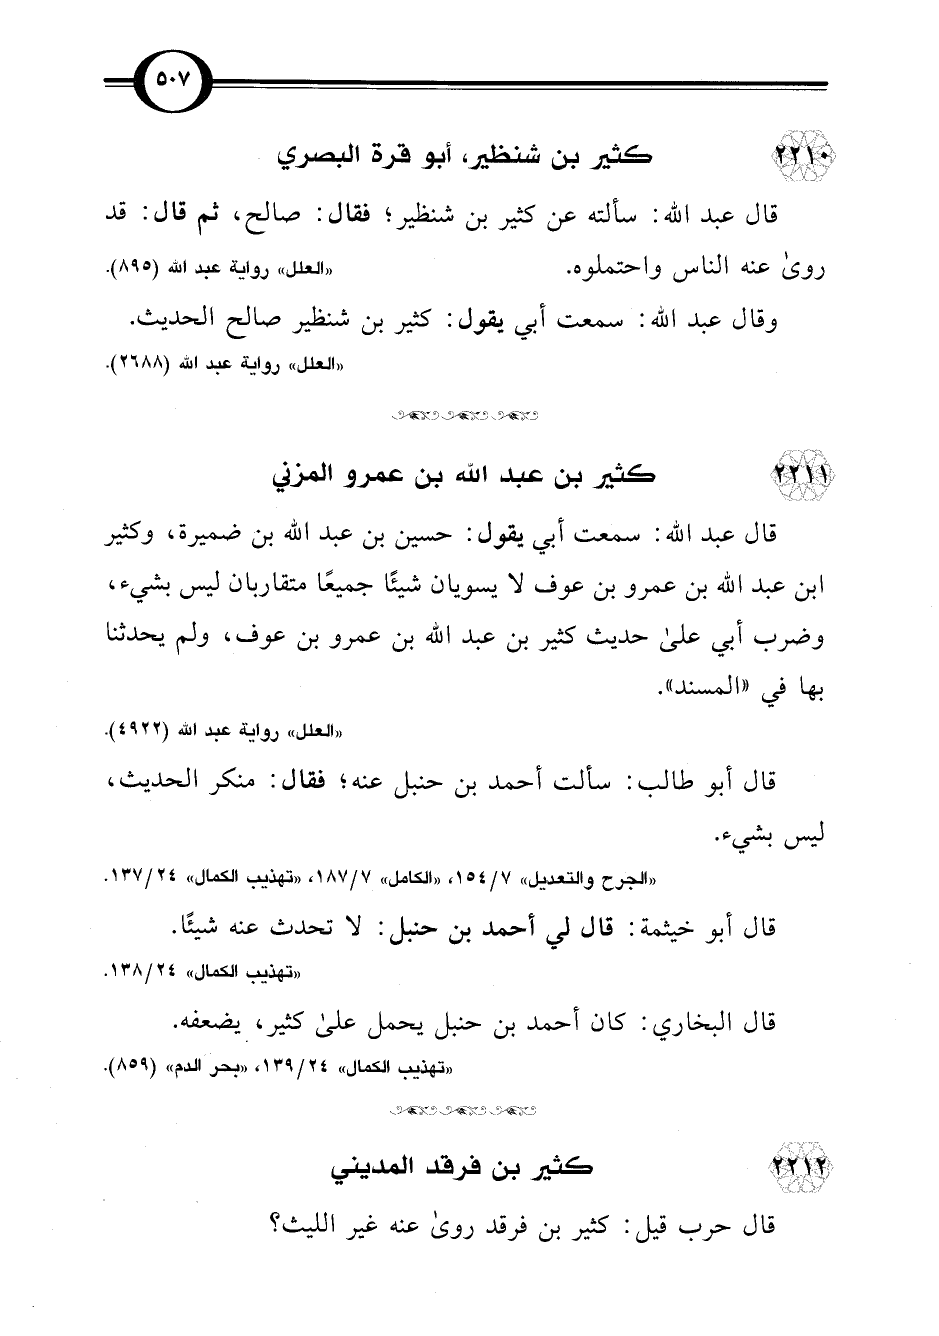 ٥٠٧
٢٢١٠ كثير بن شنظير، أبو قرة البصري
قال عبد الله: سألته عن كثير بن شنظير؛ فقال: صالح، ثم قال: قد
روىٰ عنه الناس واحتملوه. «العلل» رواية عبد الله (٨٩٥).
وقال عبد الله: سمعت أبي يقول: كثير بن شنظير صالح الحديث.
«العلل» رواية عبد الله (٢٦٨٨).
٢٢١١ كثير بن عبد الله بن عمرو المزني
قال عبد الله: سمعت أبي يقول: حسين بن عبد الله بن ضميرة، وكثير
ابن عبد الله بن عمرو بن عوف لا يسويان شيئًا جميعًا متقاربان ليس بشيء،
وضرب أبي علىٰ حديث كثير بن عبد الله بن عمرو بن عوف، ولم يحدثنا
بها في «المسند».
«العلل» رواية عبد الله (٤٩٢٢).
قال أبو طالب: سألت أحمد بن حنبل عنه؛ فقال: منكر الحديث،
ليس بشيء.
«الجرح والتعديل» ٧/ ١٥٤، «الكامل» ٧/ ١٨٧، «تهذيب الكمال» ٢٤/ ١٣٧.
قال أبو خيثمة: قال لي أحمد بن حنبل: لا تحدث عنه شيئًا.
«تهذيب الكمال» ٢٤/ ١٣٨.
قال البخاري: كان أحمد بن حنبل يحمل علىٰ كثير، يضعفه.
«تهذيب الكمال» ٢٤/ ١٣٩، «بحر الدم» (٨٥٩).
٢٢١٢ كثير بن فرقد المديني
قال حرب قيل: كثير بن فرقد روىٰ عنه غير الليث؟